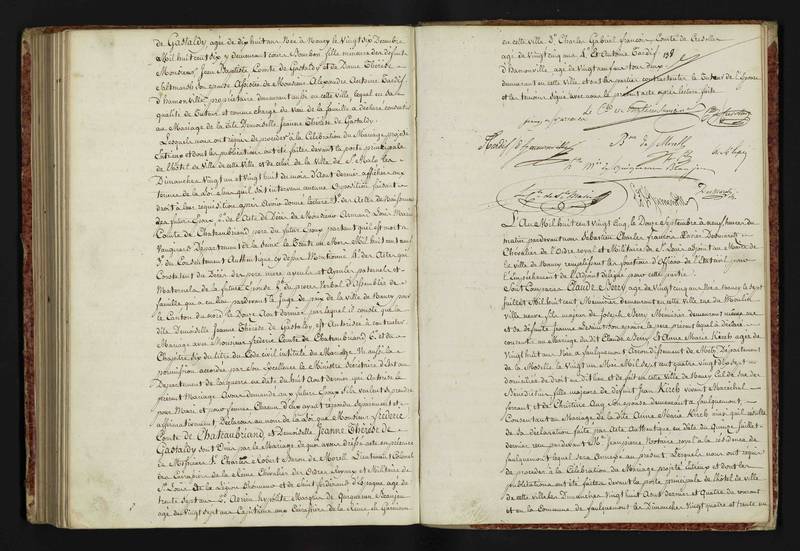 de Gastaldy, agée de dix huit ans Née à Nancy le Vingt six Decembre
Mil huit cent six y demeurant Cour Bourbon, fille mineure des défunt
Monsieur Jean Baptiste Comte de Gastaldy et de Dame Thérèse
son épouse Assistée de Monsieur Alexandre Antoine Tardif
d'hamonville propriétaire demeurant aussi en cette ville lequel en sa
qualité de Tuteur et comme chargé du vœu de la famille a déclaré consentir
au Mariage de la dite Demoiselle Jeanne Thérèse de Gastaldy.
Lesquels nous ont requis de procéder à la Célébration du Mariage projeté
Entr'eux et dont les publications ont été faites devant la porte principale
de l'hôtel de Ville de cette ville et de celui de la Ville de St Malo les
Dimanches Vingt un et Vingt huit du mois d'Aout dernier, affichées aux
termes de la Loi sans qu'il soit intervenu aucune Opposition, faisant
droit à leur requisition après Avoir donné lecture 1° des Actes de Naissance
des futurs Epoux 2° de l'Acte de Décès de Monsieur Armand Louis Marie
Comte de Chateaubriand père du futur Epoux portant qu'il est mort à
Vaugirard Département de la Seine le Trente un Mars Mil huit cent neuf
3° du Consentement Authentique de sa Mère 4° des Actes qui
Constatent du Décès des père mère, ayeuls et Ayeules paternels et
Maternels de la future Epouse 5° du procès Verbal d'Assemblée de
famille qui a eu lieu pardevant le Juge de paix de la Ville de Nancy pour
le Canton du nord le Douze Aout dernier par lequel il conste que la
dite Demoiselle Jeanne Thérèse de Gastaldy est Autorisée à contracter
Mariage avec Monsieur frédéric Comte de Chateaubriand 6° et du
Chapitre Six du titre du Code civil intitulé du Mariage. Vu aussi la
permission accordée par Son Excellence le Ministre Secrétaire d'Etat au
Département de la guerre en date du huit Aout dernier qui Autorise le
présent Mariage Avons demandé aux futurs Epoux S'ils veulent se prendre
pour Mari et pour femme Chacun d'Eux ayant répondu séparément et
affirmativement Déclarons au nom de la Loi que Monsieur frédéric
Comte de Chateaubriand et Demoiselle Jeanne Thérèse de
Gastaldy sont Unis par le Mariage de quoi avons dressé acte en présence
de Messieurs Sr Charles Robert Baron de Morell Lieutenant Colonel
des Cuirassiers de la Reine Chevalier des Ordres Royaux et Militaires de
St Louis de la Légion d'honneur et de Saint ferdinand d'Espagne agé de
trente sept ans
agé de Vingt sept ans Capitaine aux Cuirassiers de la Reine En Garnison
en cette ville 3° Charles Gabriel francois Comte de
agé de Vingt cinq ans 4° Et Antoine Tardif
D'hamonville, agé de Vingt neuf ans tous deux
demeurant en cette Ville et ont les parties contractantes le Tuteur de l'Epouse
et les témoins Signé avec nous le présent acte après lecture faite
L'An Mil huit cent Vingt Cinq, le Douze Septembre à neuf heures du
matin pardevant nous Sébastien Charles francois Xavier
Chevalier de l'Ordre royal et Militaire de St Louis adjoint au Maire de
la Ville de Nancy remplissant les fonctions d'Officier de l'Etat civil pour
l'Empêchement de l'Adjoint délégué pour cette partie.
Sont Comparus Claude Berry agé de Vingt cinq ans Né à Nancy le sept
juillet Mil huit cent Menuisier demeurant en cette Ville rue du Moulin
Ville neuve, fils majeur de Joseph Berry Menuisier demeurant même rue
et de défunte Jeanne son épouse le père présent lequel a déclaré
consentir au Mariage du dit Claude Berry Et Anne Marie Kirch agée de
Vingt huit ans Née à faulquemont Arrondissement de Metz Département
de la Moselle le Vingt un Mai Mil sept cent quatre vingt dix sept
domiciliée de Droit au dit lieu et de fait en cette Ville de Nancy
fille majeure de défunt Jean Kirch vivant Maréchal
ferrant et de Christine Aug son épouse demeurant à faulquemont,
Consentant au Mariage de la dite Anne Marie Kirch ainsi qu'il résulte
de sa déclaration faite par Acte Authentique en Date du quinze Juillet
dernier reçu pardevant Me Jeanpierre Notaire royal à la résidence de
faulquemont lequel sera Annexé au présent. Lesquels nous ont requis
de procéder à la Célébration du Mariage projeté Entr'eux et dont les
publications ont été faites devant la porte principale de l'hôtel de Ville
de cette ville les Dimanches Vingt huit Aout dernier et Quatre du courant
et en la Commune de faulquemont les Dimanches Vingt quatre et trente un